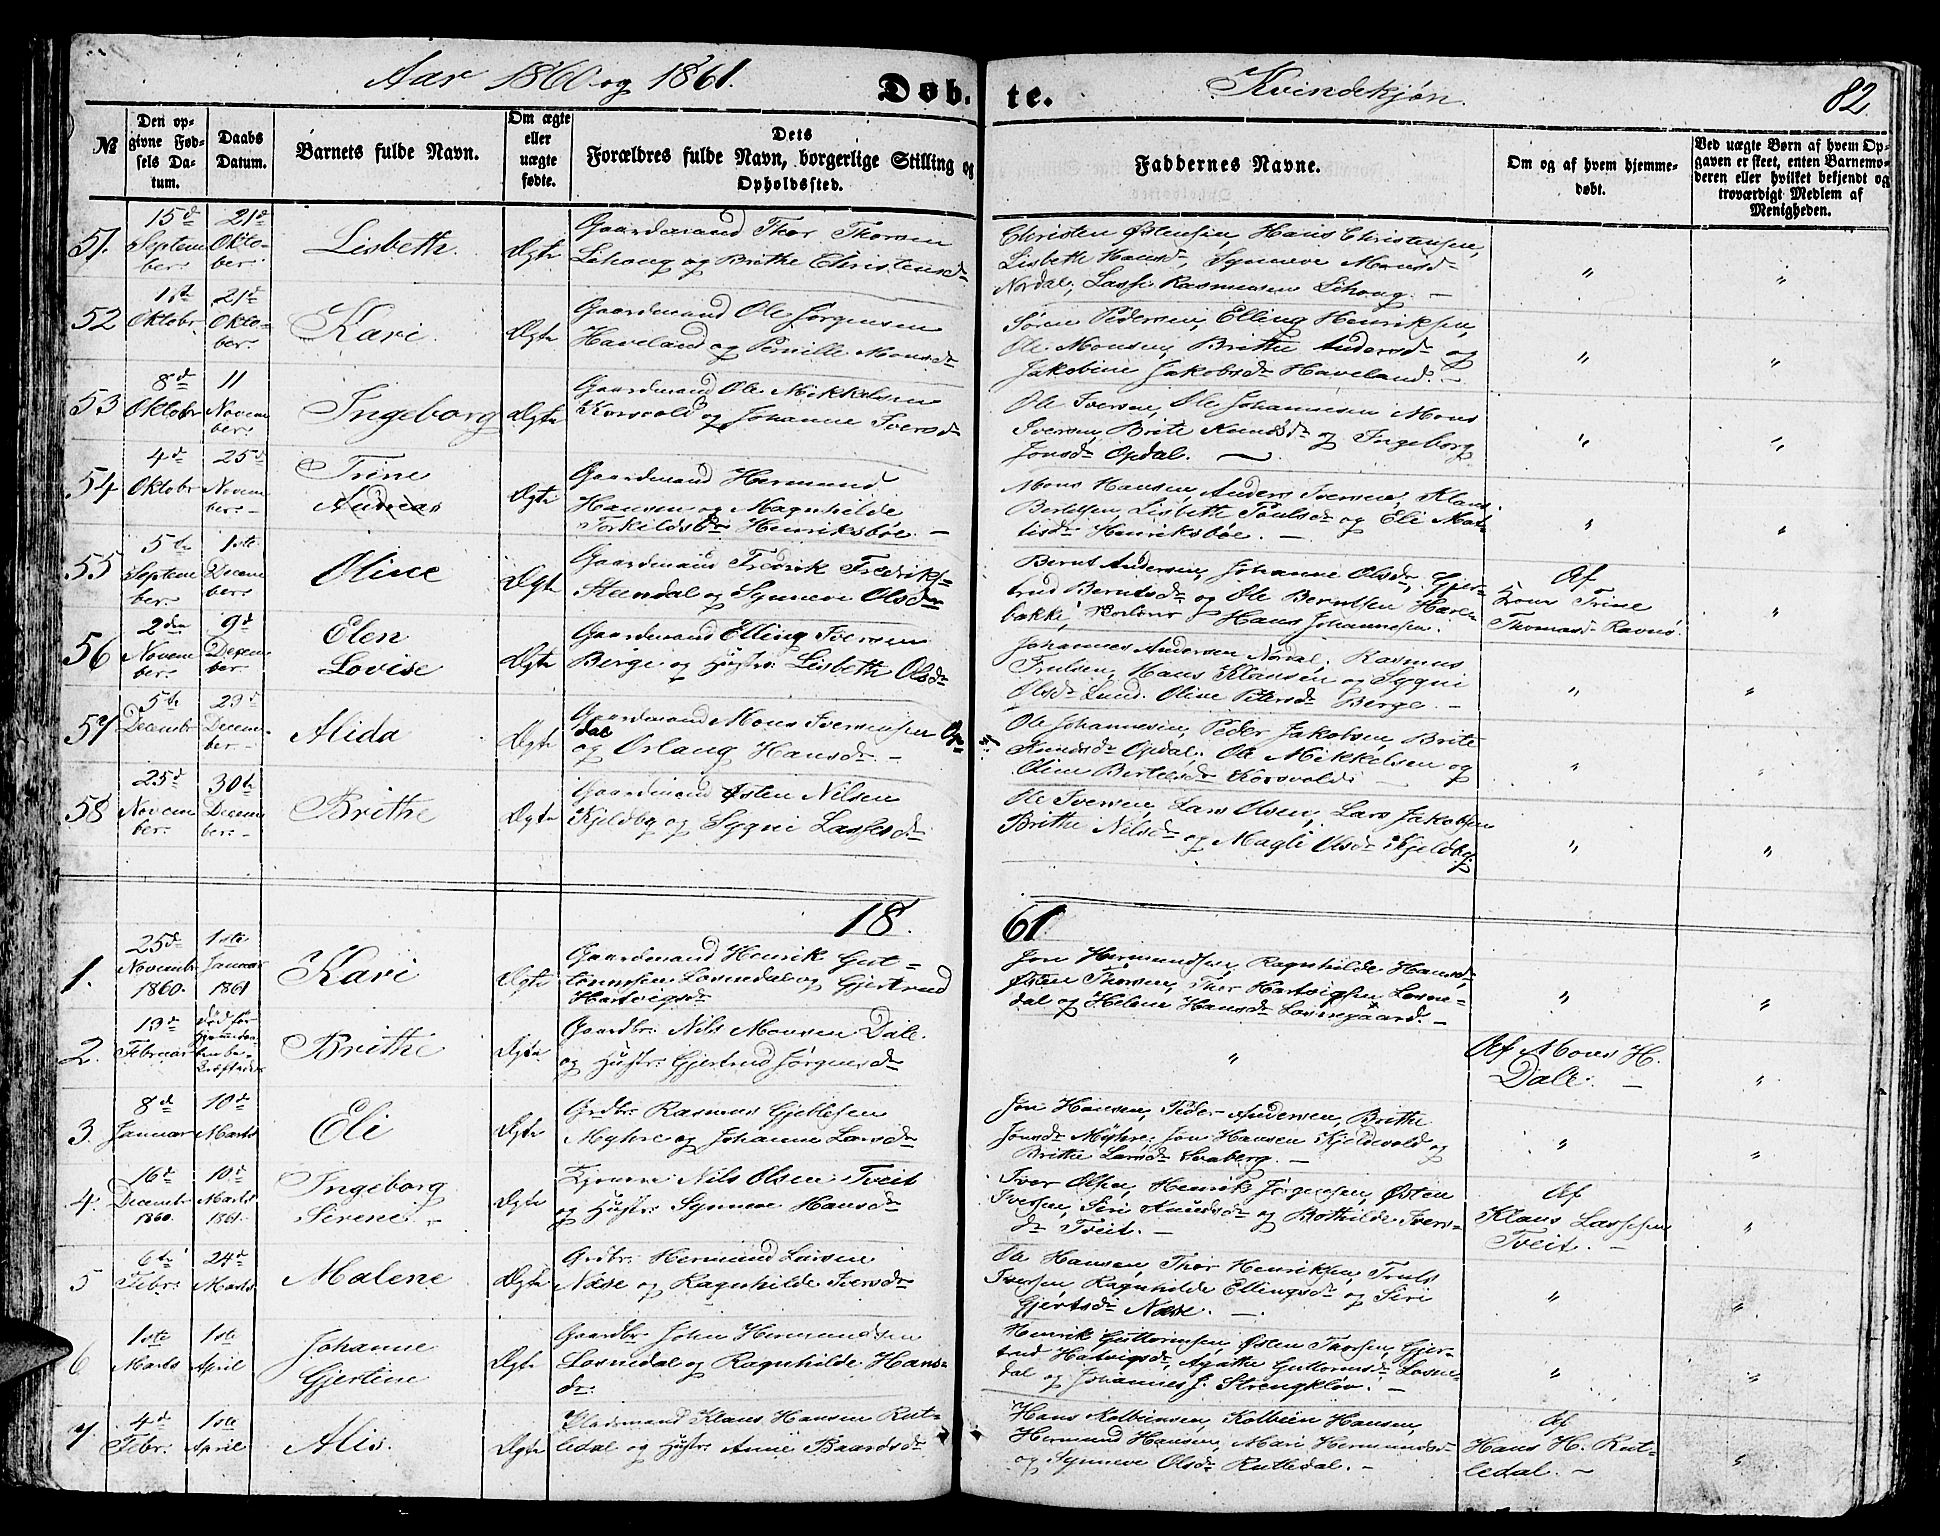 Aar 1860 og 1861.
Døb-te.
Kvindekjøn
82
№
Den opgivne Fødsels Datum.
Daabs Datum.
Barnets fulde Navn.
Om ægte eller uægte fødte.
Dets Forældres fulde Navn, borgerlige Stilling og Opholdssted.
Faddernes Navne.
Om og af hvem hjemmedøbt.
Ved uægte Børn af hvem Opgaven er skeet, enten Barnemoderen eller hvilket bekjendt og troværdigt Medlem af Menigheden.
51. 15d September 21d Oktober Lisbeth. Ægte
Gaardmand Thor Thorsen
Lihoug og Brithe Christensd
Christen Østensen, Hans Christensen,
Lisbeth Hansd, Synneve Monsd
Nordal, Lasse Rasmussen Lihoug. –
52 1ste Oktobr 21d Oktober. Kari. Ægte
Gaardmand Ole Jørgensen
Haveland og Pernille Monsd
Søren Pedersen, Elling Henriksen,
Ole Monsen, Brithe Andersd og
Jakobine Jakobsd Haveland. –
53 8d Oktobr 11 November. Ingeborg Ægte
Gaardmand Ole Mikkelsen
Korsvold og Johanne Iversd
Ole Iversen, Ole Johannesen Mons
Iversen, Brite Knudsd og Ingeborg
Jonsd Opdal. –
54 4d Oktobr 25d November. – Trine
Andreas Ægte
Gaardmand Hermund
Hansen og Magnhilde
Torkildsd Henriksbøe –
Mons Hansen, Anders Iversen, Klaus
Bertelsen, Lisbeth Poulsd og Eli Mattisd Henriksbøe. –
55 5te September. 1ste December. Oline Ægte
Gaardmand Fredrik Fredriks-
Steendal og Synneve Olsd
Bernt Andersen, Johanne Olsd, Gjertrud Berntsd og Ole Berntsen
bakke, Hans Johannesen.
Af
Kone Trine
Thomasd Ravnø.
56 2den November. 9d December. Elen
Lovise Ægte
Gaardmand Elling Iversen
Berge og Hustr: Lisbeth Olsd
Johannes Andersen Nordal, Rasmus
Trulsen, Hans Klausen og Sygni
Olsd Lund. Oline Petersd Berge. –
57 5te Decembr 29d December. – Alida Ægte
Gaardmand Mons Iversen Opdal
og Ørlaug Hansd –
Ole Johannesen, Peder Jakobsen, Brite
Knudsd Opdal. Ole Mikkelsen og
Oline Bertelsd Korsvold –
58 25d November. 30te December. – Brithe Ægte
Gaardmand Østen Nilsen
Kjeldby og Sygni Lassesd
Ole Iversen, Lars Olsen, Lars Jakobsen
Brithe Nilsd og Magli Olsd Kjeldby.
1861
1. 25d Novembr 1860. 1ste Januar 1861 Kari Ægte
Gaardmand Henrik Guttormsen Losnedal og Gjertrud
Hartvigsd
Jon Hermundsen, Ragnhilde Hansd,
Østen Thorsen, Thor Hartvigsen Losnedal og Helene Hansd Losnegaard. –
2. 13d Februar død før Hjemmedaaben be-kræftedes Brithe Ægte
Gaardbr: Nils Monsen Dale.
og Hustr: Gjertrud Jørgensd
Af Mons H.
Dale. –
3. 8d Januar 10d Marts Eli Ægte
Grdbr: Rasmus Gjellesen
Myhre og Johanne Larsd
Jon Hansen, Peder Andersen, Brithe
Jonsd Myhre, Jon Hansen Kjeldevold og
Brithe Larsd Svaberg. –
4. 16de Decembr 1860. 10d Marts 1861. Ingeborg
Sirene. – Ægte
Nils Olsen Tveit
og Hustr: Synneve Hansd
Iver Olsen, Henrik Jørgensen, Østen
Iversen, Siri Knudsd og Bothilde Iversd Tveit. –
Af
Klaus Lassesen
Tveit. –
5 6te Febr: 24d Marts Malene Ægte
Grdbr: Hermund Larsen
Næse og Ragnhilde Iversd
Ole Hansen, Thor Henriksen, Truls
Iversen, Ragnhilde Ellingsd og Siri
Gjertsd Næse. –
6 1ste Marts 1ste April Johanne
Gjertine Ægte
Gaardbr: John Hermundsen
Losnedal og Ragnhilde Hansd:
Henrik Guttormsen, Østen Thorsen, Gjertrud Hatvigsd, Agathe Guttormsd Losnedal og Johannes J. Strengkløv. –
7 4d Febr: 1ste April Alis. Ægte
Pladsmand Klaus Hansen Rutledal og Hustr: Anne Baardsd
Hans Kolbensen, Kolbein Hansen,
Hermund Hansen, Mari Hermundsd
og Synneve Olsd Rutledal. –
Af
Hans H. Rutledal. –